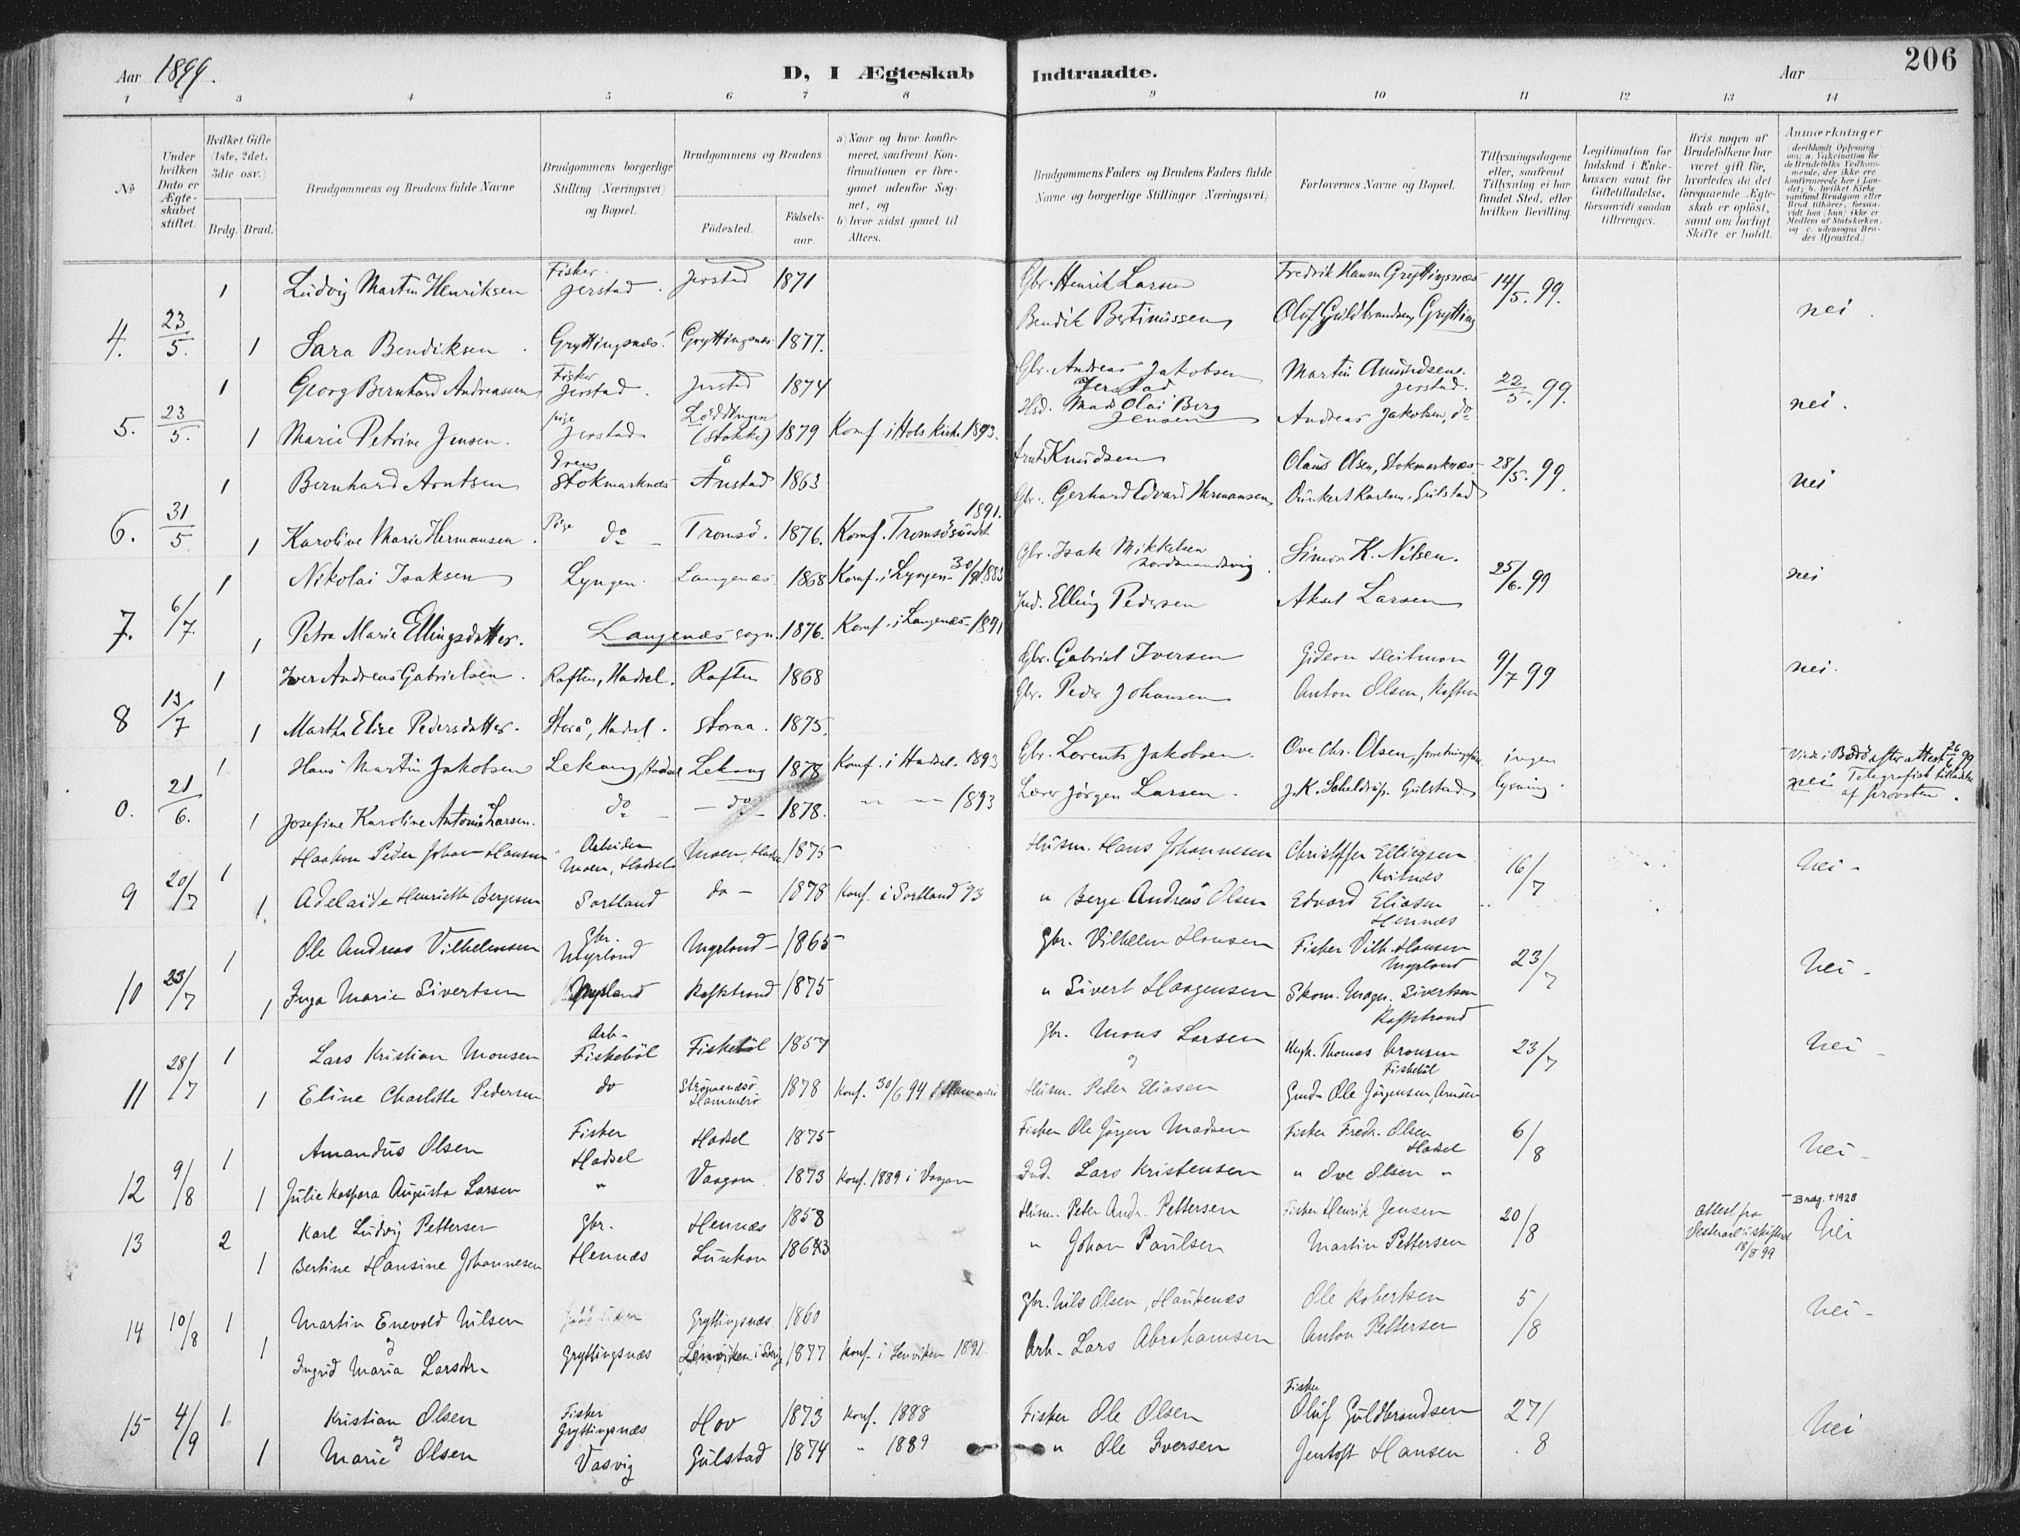 206
Aar 1899.
D, I Ægteskab Indtraadte.
Aar
1 2 3 4 5 6 7 8 9 10 11 12 13 14
№
Under hvilken Dato er Ægteskabet stiftet.
Hvilket Gifte (1ste, 2det, 3die osv.)
Brdg. Brud.
Brudgommens og Brudens fulde Navne
Brudgommens borgerlige Stilling (Næringsvei) og Bopæl.
Brudgommens og Brudens
Fødested.
Fødselsaar.
a) Naar og hvor konfirmeret, saafremt Konfirmationen er foregaaet udenfor Sognet, og
b) hvor sidst gaaet til Alters.
Brudgommens Faders og Brudens Faders fulde Navne og borgerlige Stillinger (Næringsvei)
Forlovernes Navne og Bopæl.
Tillysningsdagene eller, saafremt Tillysning ei har fundet Sted, efter hvilken Bevilling.
Legitimation for Indskud i Enkekassen samt for Giftetilladelse, forsaavidt saadan tiltrænges.
Hvis nogen af Brudefolkene har været gift før, hvorledes da det foregaaende Ægteskab er opløst, samt om lovligt Skifte er holdt.
Anmærkninger
Ludvig Martin Henriksen Fisker. Jerstad. Jerstad 1871 Gbr. Henrik Larsen Fredrik Hansen Gryttingsnæs 14/5. 99. nei.
4. 23/5. 1 Sara Bendiksen Gryttingsnæs. Gryttingsnæs 1877. Bendik Bertinussen Oluf Guldbrandsen, Grytting
1 Georg Bernhard Andreassen Fisker Jerstad. Jerstad 1874 Gbr. Andreas Jakobsen Jerstad Martin Amundsen. Jerstad. 22/5. 99. nei.
5. 23/5. 1 Marie Petrine Jensen. pige Jerstad Löddingen (Stokke) 1879 Konf. i Hols Kirke 1893. Hsd. Mads Olai Berg Jensen Andreas Jakobsen, do
1 Bernhard Arntsen Stokmarknæs Ånstad 1863 Arnt Knudsen Olaus Olsen, Stokmarknæs 28/5. 99. nei
6. 31/5 1 Karoline Marie Hermansen. Pige do Tromsö. 1876. Konf. Tromsösundet 1891. Gbr. Gerhard Edvard Hermansen Karlsen, Gulstad
1 Nikolai Isaksen Lyngen. Langenæs 1868 Konf. i Lyngen Gbr. Isak Mikkelsen Simon K. Nilsen. 25/6. 99 nei
7. 6/7. 1 Petra Marie Ellingsdatter. Langenæs sogn. 1876. Konf. i Langenæs 1891 Ind. Elling Pedersen Aksel Larsen
1 Iver Andreas Gabrielsen. Raften, Hadsel. Raften 1868 Gbr. Gabriel Iversen Gideon Heitmon 9/7 99 nei.
8 13/7 1 Martha Elise Pedersdatter. Storå, Hadsel. Storaa. 1875. Gbr. Peder Johansen Anton Olsen, Raften
1 Hans Martin Jakobsen Lekang, Hadsel Lekang 1878 Konf. i Hadsel. 1893 Gbr. Lorents Jakobsen. Ove Chr. Olsen, ingen lysning. nei Telegrafisk tilladelse af provsten.
0. 21/6. 1 Josefine Karoline Antonie Larsen. do do 1878. " " 1893 Lærer Jörgen Larsen. J. K. Scheldrup. Gulstad
1 Haakon Peder Johan Hansen Arbeider Moen, Hadsel Moen, Hadsel 1875 Husm. Hans Johannesen Christoffer Ellingsen Kvitnes 16/7 Nei -
9 20/7 1. Adelaide Henriette Bergesen Sortland do - 1878 Konf. i Sortland 93 " Berge Andreas Olsen Edvard Eliasen Hennæs
1 Ole Andreas Vilhelmsen Gbr. Myrland Myrland - 1865 Gbr. Vilhelm Hansen Fisker Vilh. Hansen Myrland 23/7 Nei -
10 23/7 1 Inga Marie Sivertsen Myrland Raftstrand 1875 " Sivert Haagensen Skom. Magn. Sivertsen Raftstrand
1 Lars Kristian Monsen Arb. Fiskeböl Fiskeböl 1857 Gbr. Mons Larsen Ungk. Thomas Aronsen Fiskeböl 23/7 Nei -
11 28/7 1 Eline Charlotte Pedersen do Strömsnæsö Hammerö 1878 Konf. 30/6 94 i Hammerö Husm. Peder Eliasen Gmd. Ole Jörgensen, Arnöen
1 Amandus Olsen Fisker Hadsel Hadsel 1875 Fisker Ole Jörgen Madsen Fisker Fredr. Olsen Hadsel 6/8 Nei -
12 9/8 1 Julie Kaspara Augusta Larsen " Vaagan 1873 Konf. 1889 i Vaagan Ind. Lars Kristensen " Ove Olsen "
13 2 Karl Ludvig Pettersen Gbr. Hennæs 1858 Husm. Peter Andr. Pettersen Fisker Henrik Jensen 20/8 Attest fra 18/8 99 Brdg. † 1928 Nei
1 Bertine Hansine Johannesen Hennæs Lunkan " Johan Paulsen Martin Pettersen
14 10/8 1 Martin Enevold Nilsen Gryttingsnæs 1860 Gbr. Nils Olsen, Haukenæs Ole Robertsen 5/8 Nei -
1 og Ingrid Maria Larsdtr. Gryttingsnæs Lenviken i Senja 1877 Konf. i Lenviken 1891. Arb. Lars Abrahamsen Anton Pettersen
15 4/9 1 Kristian Olsen Fisker Gryttingsnæs Hov 1873 Konf. 1888 Fisker Ole Olsen Fisker Oluf Guldbrandsen 27/8 Nei
1 og Marie Olsen Vasvig Gulstad 1874 " 1889 " Ole Iversen Jentoft Hansen